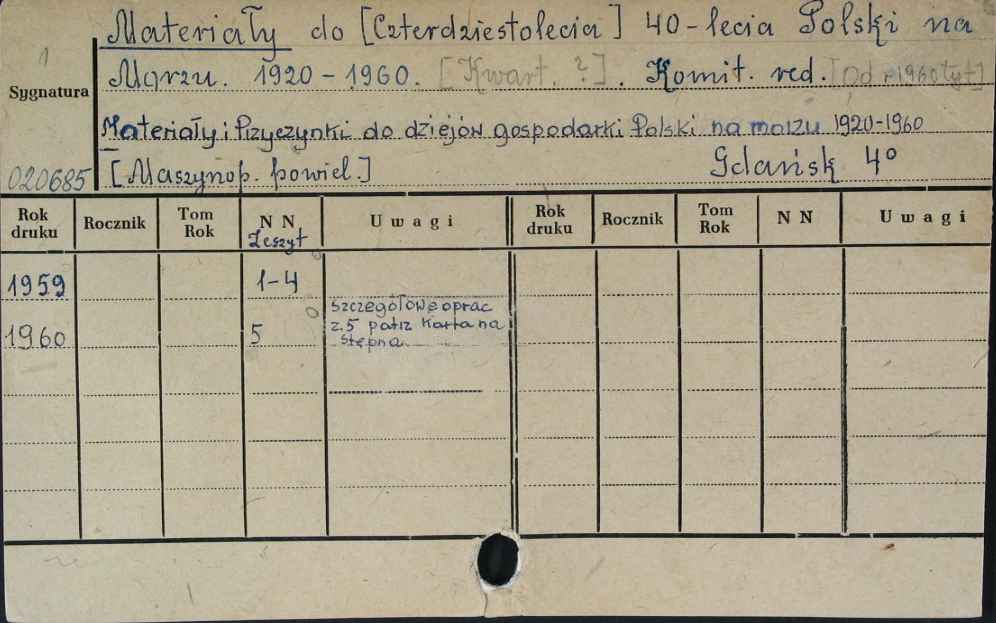 Materiały do [Czterdziestolecia] 40-lecia Polski na
1
Morzu. 1920-1960. [Kwart. ?]. Komit. red. [Od r. 1960 tyt]
Sygnatura
Materiały i Przyczynki do dziejów gospodarki Polski na morzu 1920-1960
020685 [Maszynop. powiel.] Gdańsk 4º
Rok druku Rocznik Tom Rok N N Zeszyt Uwagi Rok druku Rocznik Tom Rok N N Uwagi
1959 1-4
szczegółowe oprac
1960 5 z.5 patrz Karta na
stępna